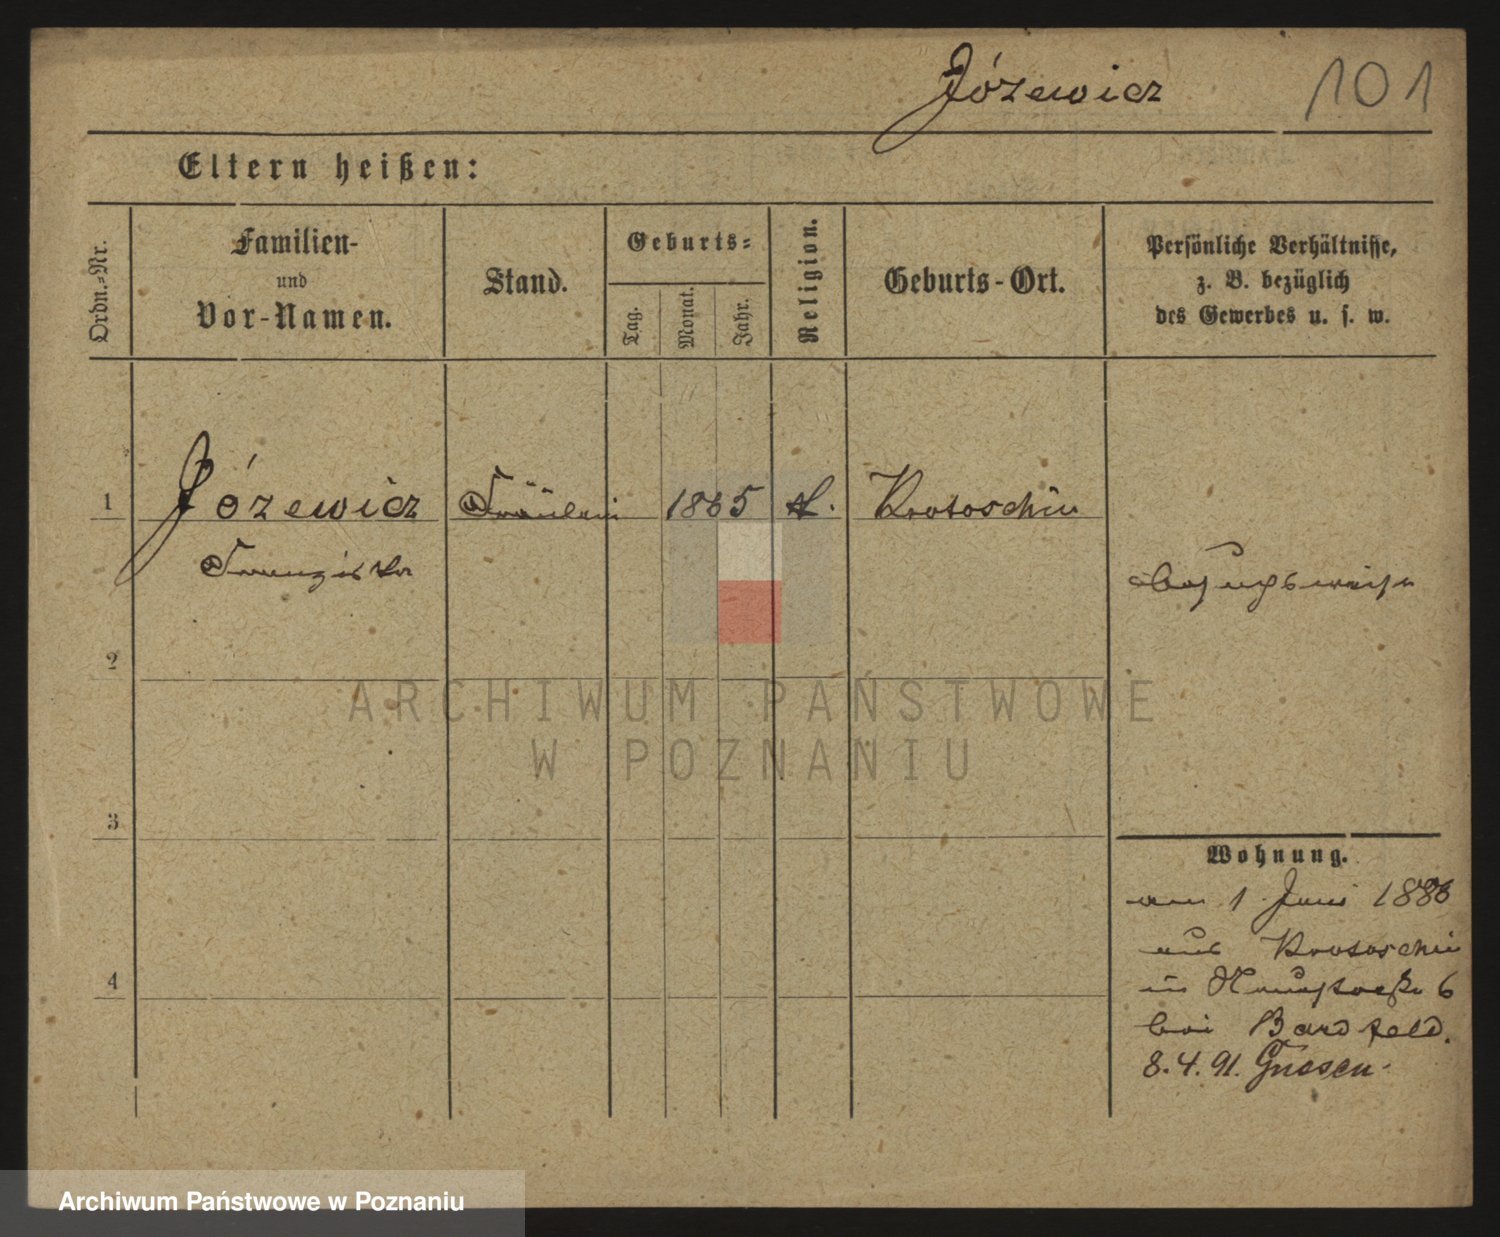 Józewicz 101
Eltern heißen:
Ordn.-Nr.
Familien-
und
Vor-Namen.
Stand.
Geburts-
Tag.
Monat.
Jahr.
Religion.
Geburts-Ort.
Persönliche Verhältnisse,
z. B. bezüglich
des Gewerbes u. s. w.
1 Józewicz Fräulein 1865 k. Krotoschin
Franziska
besuchsweise
2
ARCHIWUM PAŃSTWOWE
W POZNANIU
3
Wohnung.
am 1 Juni 1886
aus Krotoschin
4
in 6
bei Bardfeld.
8.4.91. Gnesen
Archiwum Państwowe w Poznaniu